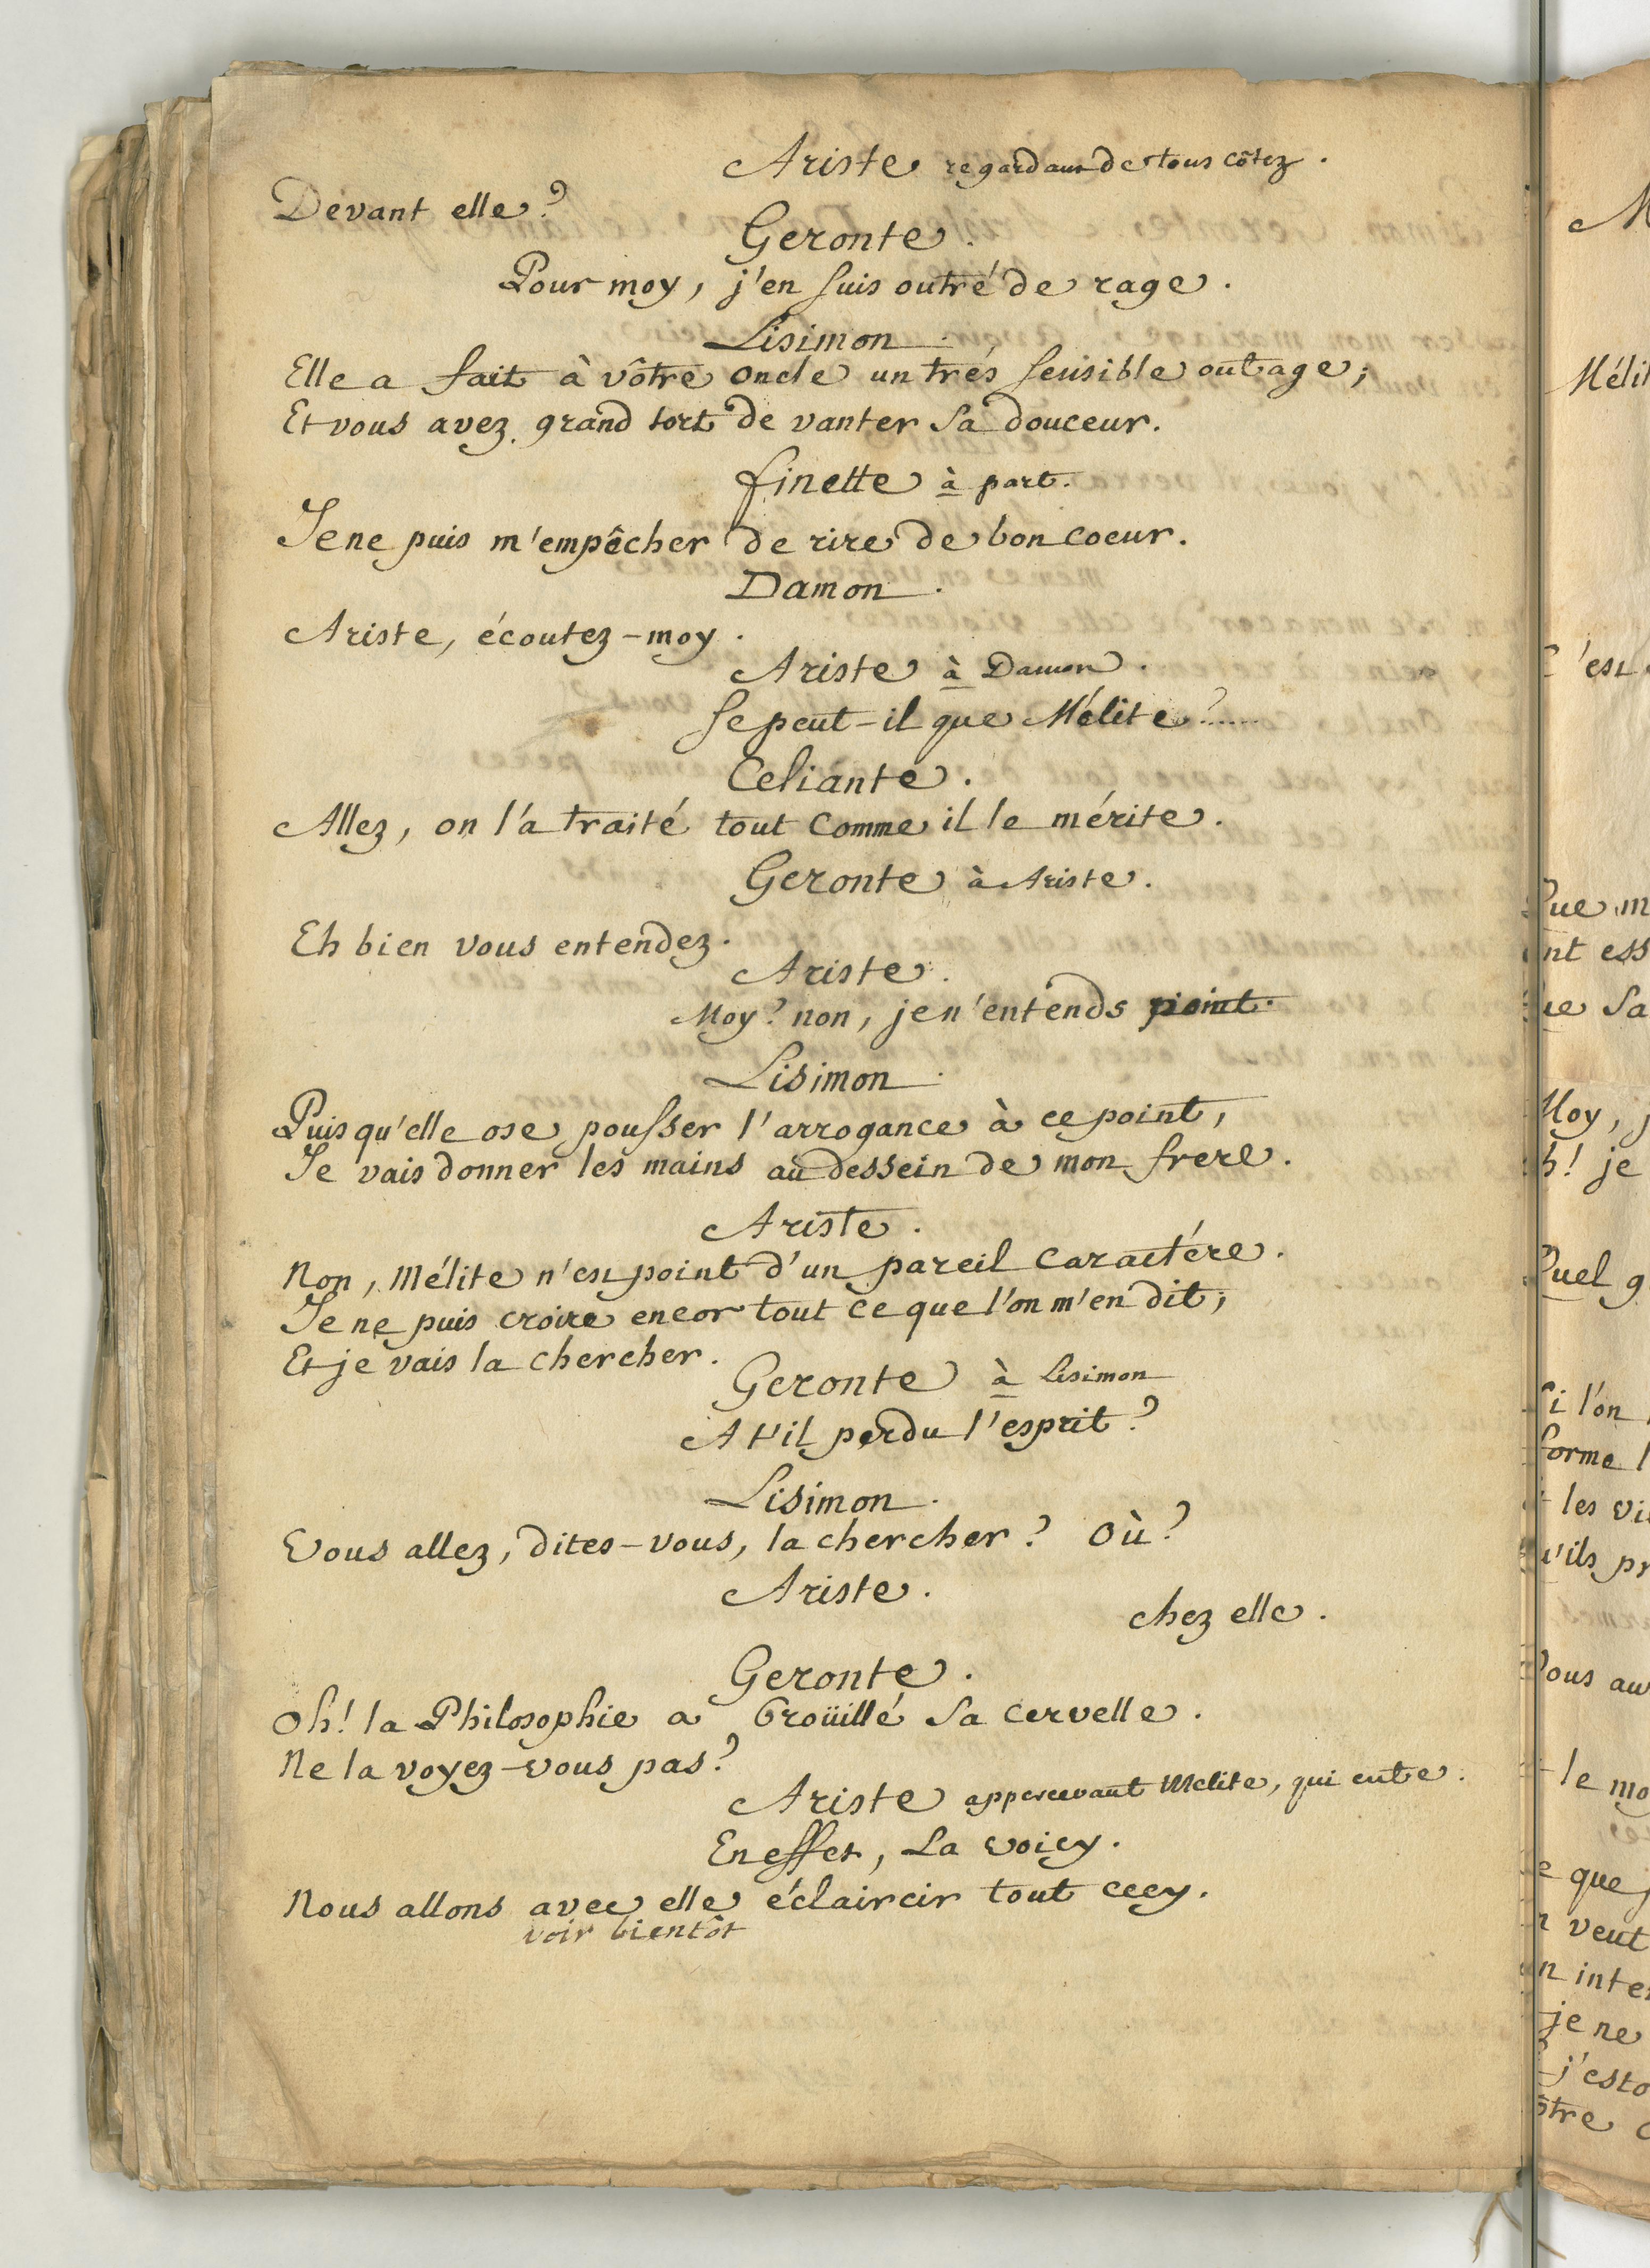 Ariste regardant de tous côtez.
Devant elle?
Geronte.
Pour moy, j'en suis outré de rage.
Lisimon.
Elle a fait à vôtre oncle un trés sensible outrage;
Et vous avez grand tort de vanter sa douceur.
finette à part.
Je ne puis m'empêcher de rire de bon coeur.
Damon.
Ariste, écoutez-moy.
Ariste à Damon.
Se peut-il que Mélite?......
Celiante.
Allez, on l'a traité tout comme il le mérite.
Geronte à Ariste.
Eh bien vous entendez.
Ariste.
Moy? non, je n'entends point.
Lisimon.
Puisqu'elle ose pousser l'arrogance à ce point,
Je vais donner les mains au dessein de mon frere.
Ariste.
Non, Mélite n'est point d'un pareil caractére.
Je ne puis croire encor tout ce que l'on m'en dit;
Et je vais la chercher.
Geronte à Lisimon
A t'il perdu l'esprit?
Lisimon.
Vous allez, dites-vous, la chercher? Où?
Ariste.
chez elle.
Geronte.
Oh! la Philosophie a broüillé sa cervelle.
Ne la voyez-vous pas?
Ariste appercevant Melite, qui entre.
En effet, La voicy.
Nous allons avec elle éclaircir tout cecy.
voir bientôt